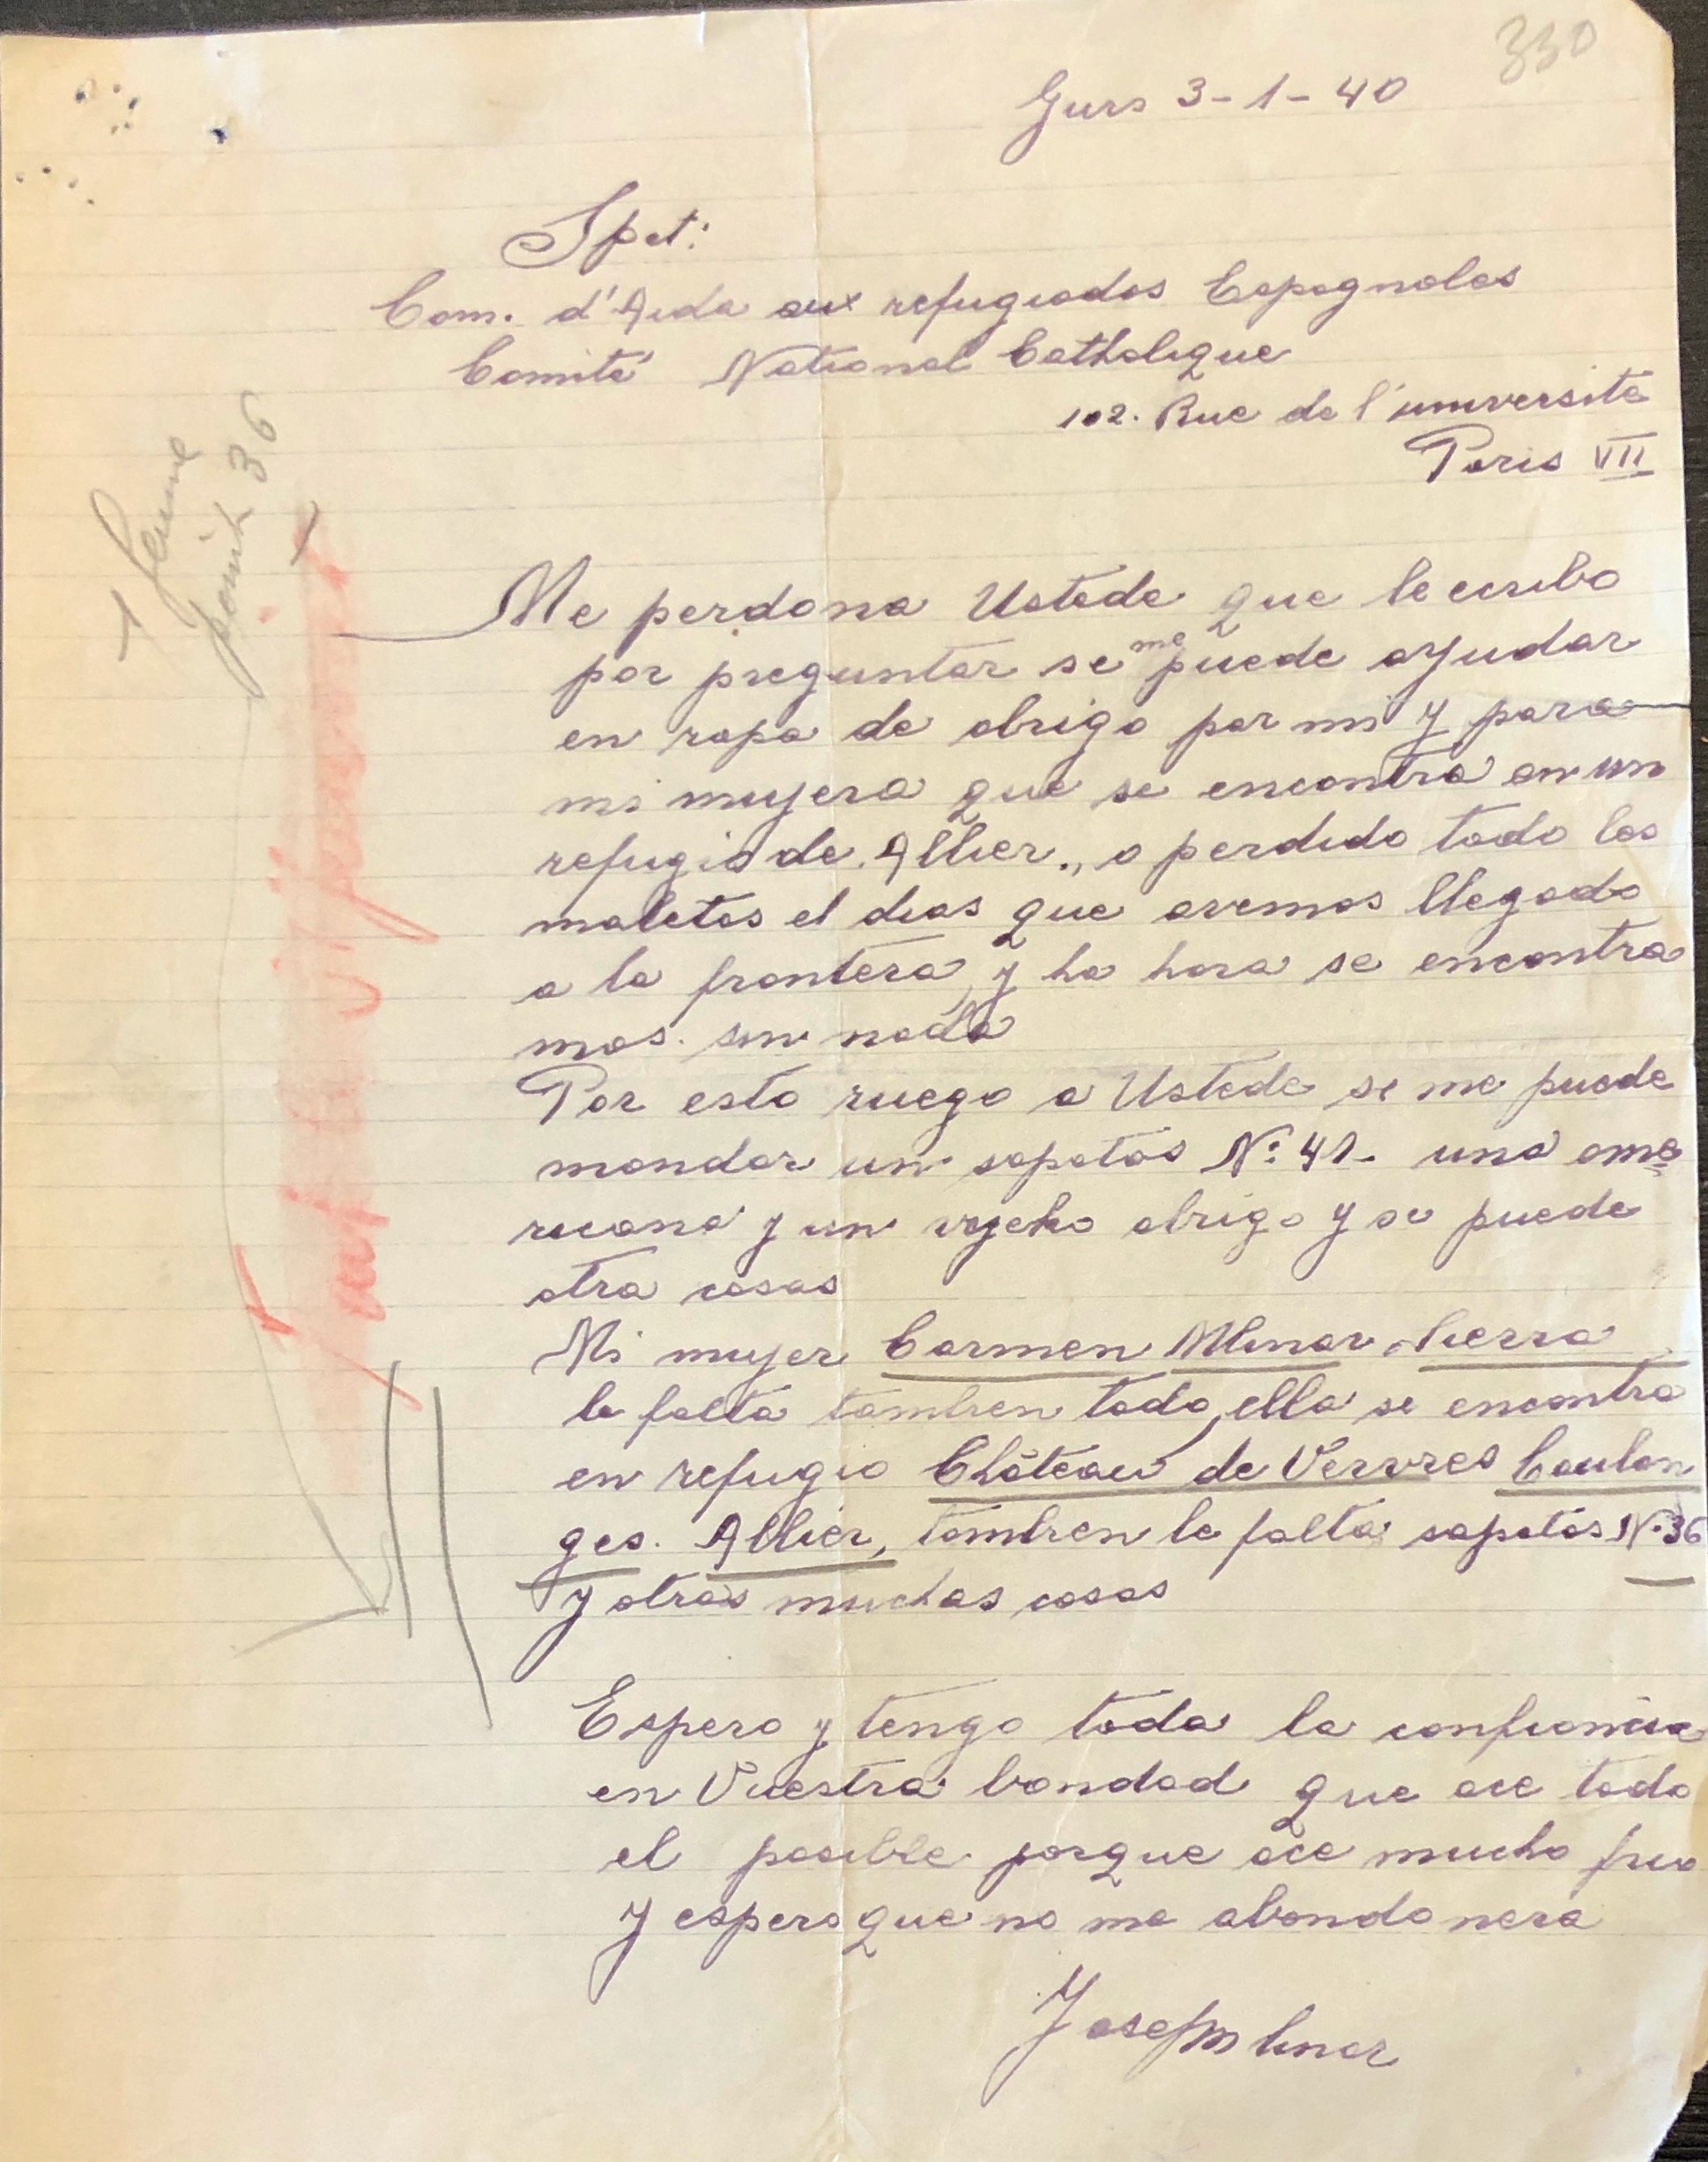 330
Gurs 3-1-40
Spet:
Com. d'Aida aux refugiados Espagnolas
Comité National Catholique
102. Rue de l'universite
Paris VII
1 femme
point 36
Me perdona Ustede que le ecribo
por preguntar se me puede ayudar
en ropa de abrigo par mi y para
mi mujera que se encontra en un
refugio de Allier., a perdido todo las
maletas el dias que avemos llegado
a la frontera y ha hora se encontra
mos. sin nada
Por esto ruego a Ustede se me puede
mandar un sapatos Nº 41- una ame
ricana y un vojeho abrigo y se puede
otra cosas
Mi mujer Carmen Mlinar Sierra
le falta tambien todo, ella se encontra
en refugio Château de Vervres Coulan
ges. Allier, tambien le falta sapatos Nº 36
y otras muchas cosas
Espero y tengo toda la confiancia
en Vuestra bondad que ace todo
el posible porque ace mucho frio
y espero que no me abandonera
Josef Mlinar